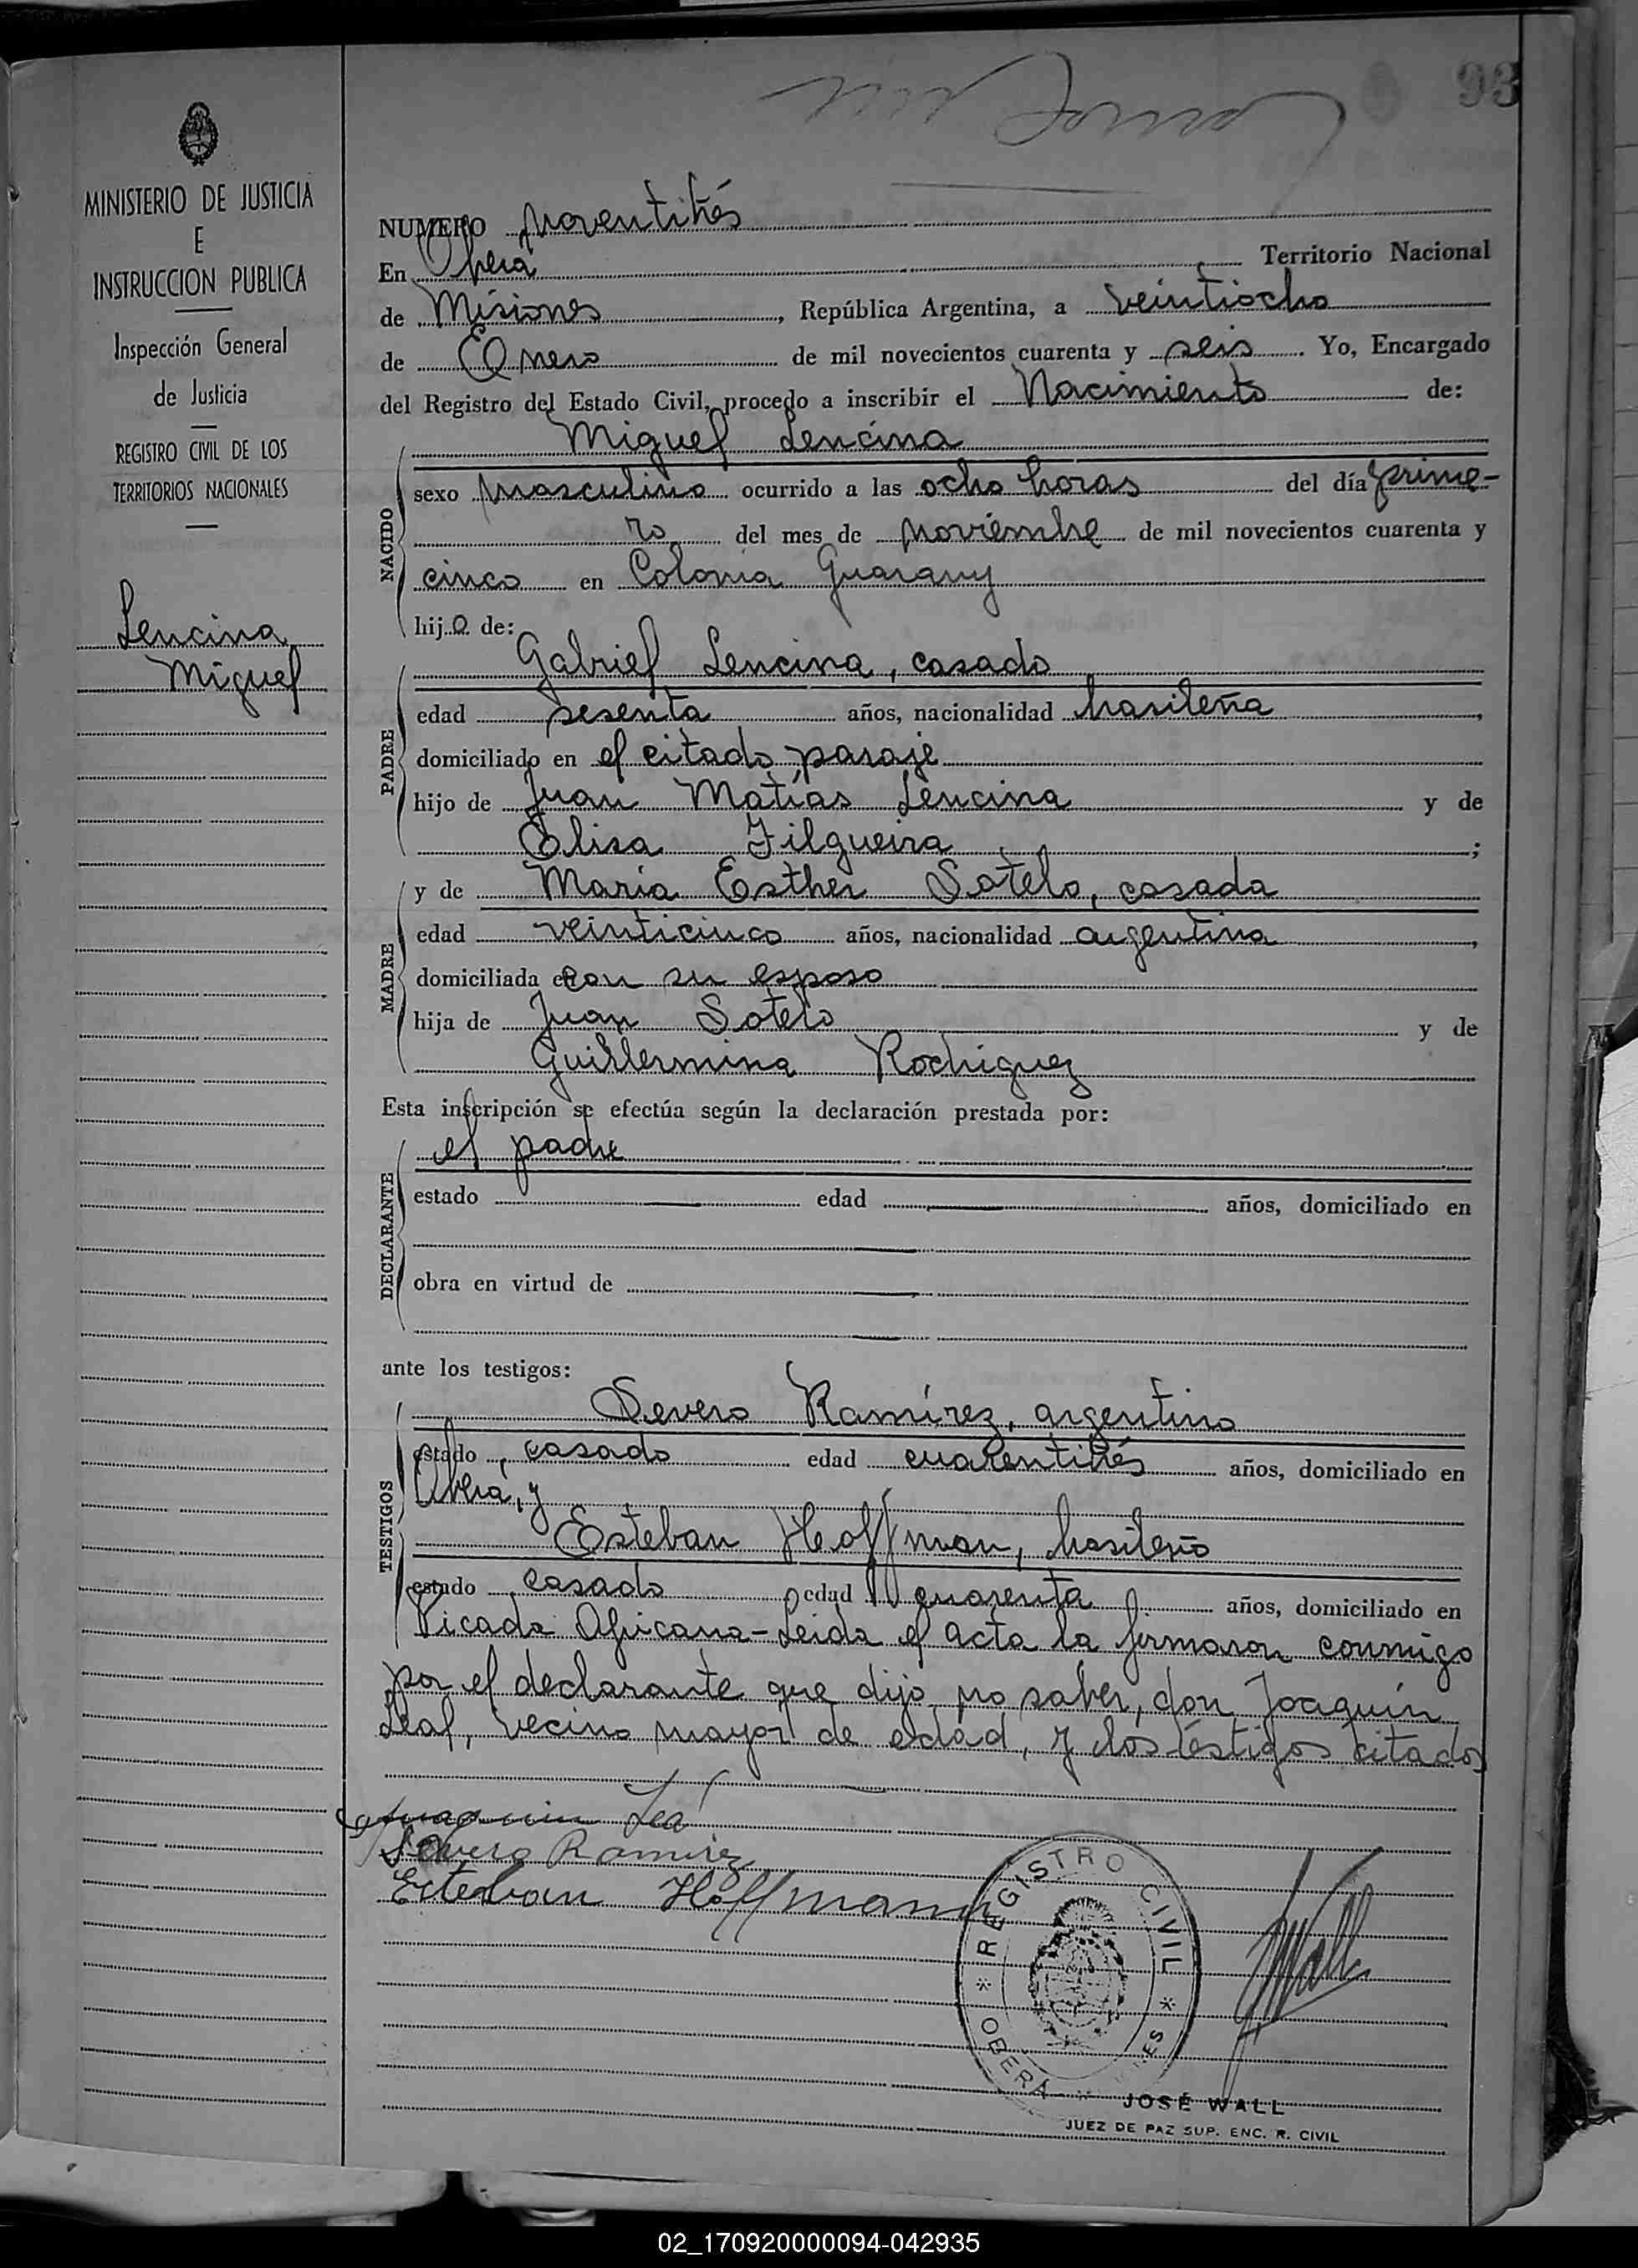 93
MINISTERIO DE JUSTICIA
E
INSTRUCCION PUBLICA
Inspección General
de Justicia
REGISTRO CIVIL DE LOS
TERRITORIOS NACIONALES
Lencina
Miguel
NUMERO noventitrés
En Oberá Territorio Nacional
de Misiones, República Argentina, a veintiocho
de Enero de mil novecientos cuarenta y seis. Yo, Encargado
del Registro del Estado Civil, procedo a inscribir el Nacimiento de:
Miguel Lencina
NACIDO
sexo masculino ocurrido a las ocho horas del día prime-
ro del mes de noviembre de mil novecientos cuarenta y
cinco en Colonia Guarany
hijo de:
PADRE
Gabriel Lencina, casado
edad sesenta años, nacionalidad brasileña,
domiciliado en el citado paraje
hijo de Juan Matías Lencina y de
Elisa Filgueira;
MADRE
y de María Esther Sotelo, casada
edad veinticinco años, nacionalidad argentina,
domiciliada con su esposo
hija de Juan Sotelo y de
Guillermina Rodriguez
Esta inscripción se efectúa según la declaración prestada por:
DECLARANTE
el padre
estado edad años, domiciliado en
obra en virtud de
ante los testigos:
TESTIGOS
Severo Ramírez, argentino
estado, casado edad cuarentitrés años, domiciliado en
Oberá, y
Esteban Hoffman, brasileño
estado casado edad cuarenta años, domiciliado en
Picada Africana-Leida el acta la firmaron conmigo
por el declarante que dijo no saber, don Joaquín
Leal, vecino mayor de edad, y los testigos citados
Joaquin Leal
Severo Ramirez
Esteban Hoffmann
REGISTRO CIVIL
OBERÁ
JWall
JOSÉ WALL
JUEZ DE PAZ SUP. ENC. R. CIVIL
02_170920000094-042935